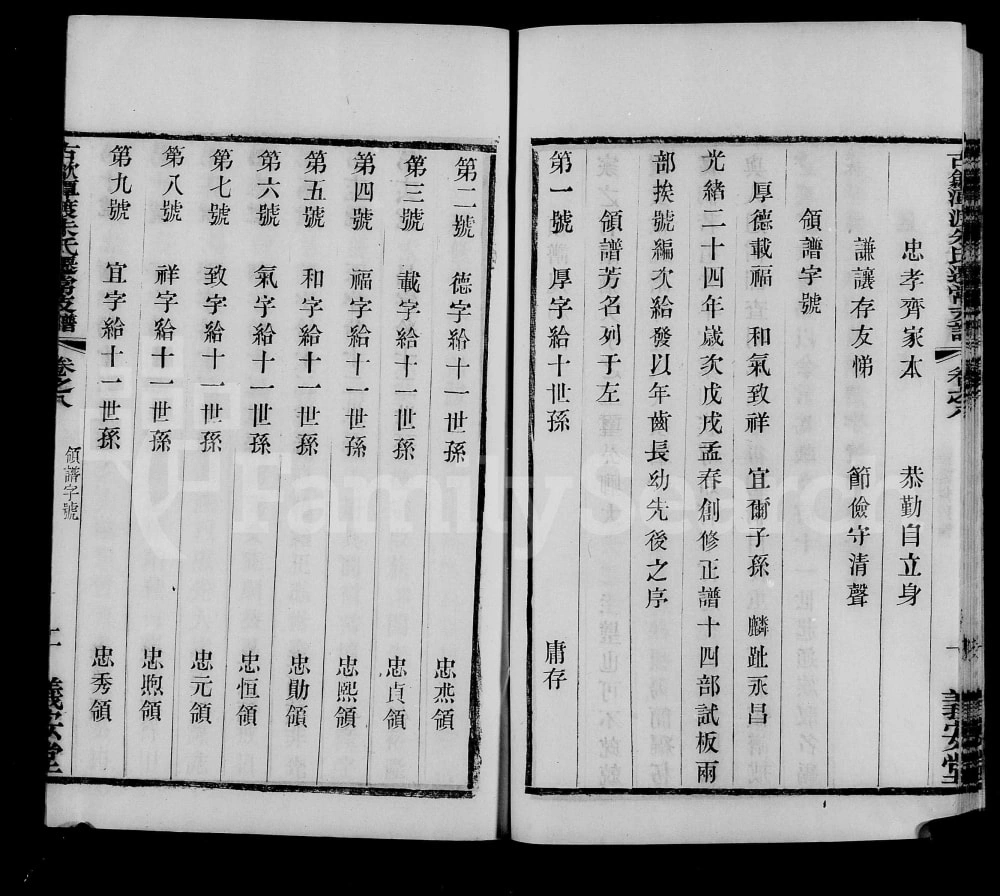 忠孝齊家本　恭勤自立身
謙讓存友悌　節儉守清聲
領譜字號
厚德載福　和氣致祥　宜爾子孫　麟趾永昌
光緒二十四年歲次戊戌孟春創修正譜十四部試板兩
部挨號編次給發以年齒長幼先後之序
領譜芳名列于左
第一號　厚字給十世孫　庸存
第二號　德字給十一世孫　忠燕領
第三號　載字給十一世孫　忠貞領
第四號　福字給十一世孫　忠熙領
第五號　和字給十一世孫　忠勛領
第六號　氣字給十一世孫　忠恒領
第七號　致字給十一世孫　忠元領
第八號　祥字給十一世孫　忠煦領
第九號　宜字給十一世孫　忠秀領
卷之八　領譜字號　二　義安堂
FamilySearch